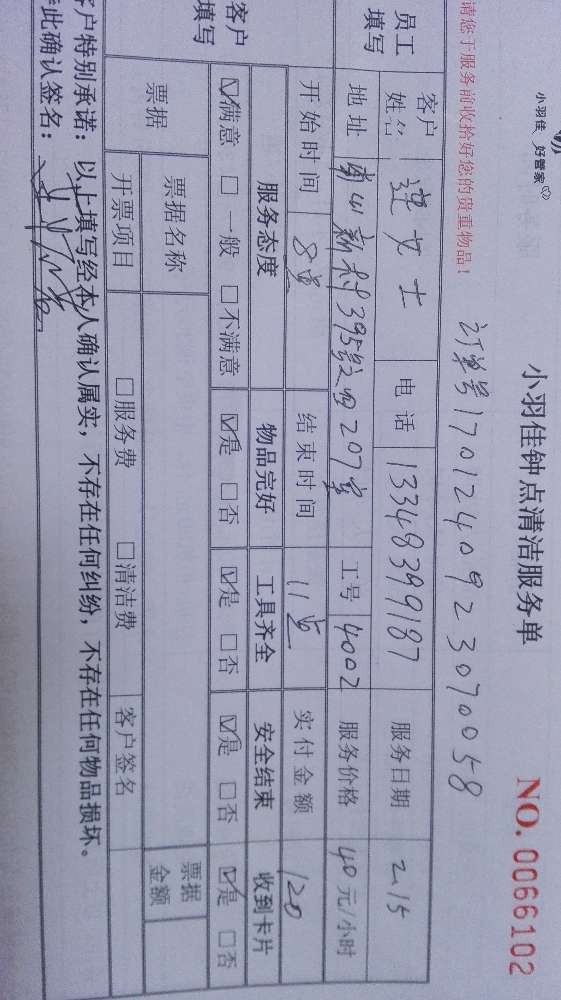 小羽佳 好管家
小羽佳钟点清洁服务单
NO. 0066102
请您于服务前收拾好您的贵重物品!
订单号1701240923070058
员工填写
客户姓名 连女士 电话 13348399187 服务日期 2.15
地址 南山新村395号之四207室 工号 4002 服务价格 40元/小时
开始时间 8点 结束时间 11点 实付金额 120
客户填写
服务态度 物品完好 工具齐全 安全结束 收到卡片
☑满意 □一般 □不满意 ☑是 □否 ☑是 □否 ☑是 □否 ☑是 □否
票据 票据名称 票据金额
开票项目 □服务费 □清洁费 客户签名
客户特别承诺:以上填写经本人确认属实,不存在任何纠纷,不存在任何物品损坏。
此确认签名: